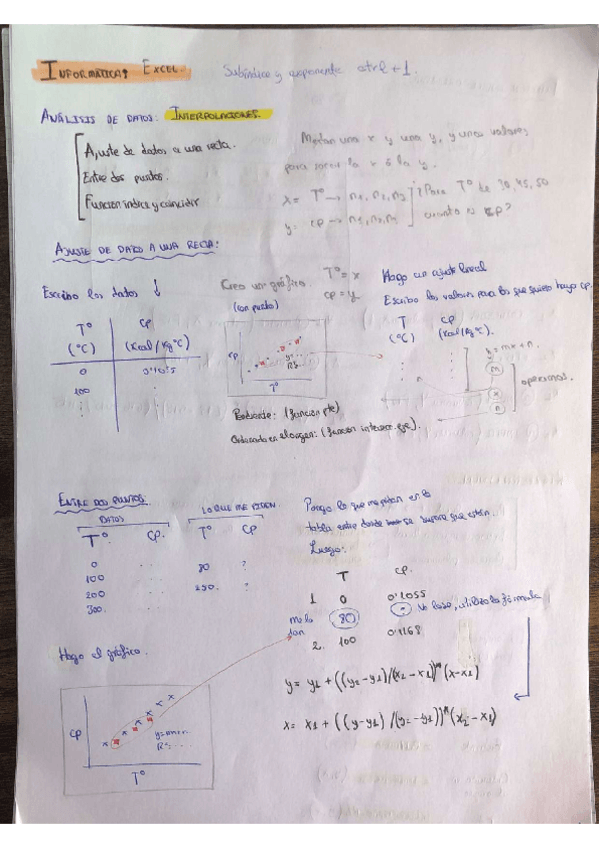 INFORMÁTICA: EXCEL.
Subíndice y exponente ctrl+1.
ANÁLISIS DE DATOS: INTERPOLACIONES.
Ajuste de datos a una recta.
Entre dos puntos.
Función índice y coincidir
Me dan una x y una y, y unos valores
para sacar la x ó la y.
x = Tº → n1, n2, n3
y = cp → n1, n2, n3
? Para Tº de 30, 45, 50
cuanto es cp?
AJUSTE DE DATOS A UNA RECTA:
Escribo los datos ↓
Tº cp
(ºC) (Kcal/Kg ºC)
0 0'1055
100
Creo un gráfico Tº = x
(con puntos) cp = y
cp
y = ...
R²...
Tº
Pendiente: (función pte)
Ordenada en el origen: (función intersec. eje).
Hago un ajuste lineal
Escribo los valores para los que quiero haya cp.
T cp
(ºC) (Kcal/Kg ºC).
y = mx + n.
m
x
n
operamos.
ENTRE DOS PUNTOS:
DATOS
Tº cp.
0
100
200
300.
LO QUE ME PIDEN.
Tº cp
80 ?
250. ?
Pongo lo que me piden en la
tabla entre donde se supone que están.
Luego:
T cp.
1 0 0'1055
me lo dan 80 No lo se, utilizo la fórmula
2. 100 0'1168
Hago el gráfico.
cp
y = mx+n.
R²...
Tº
y = y1 + ((y2 - y1)/(x2 - x1))*(x - x1)
x = x1 + ((y - y1)/(y2 - y1))*(x2 - x1)